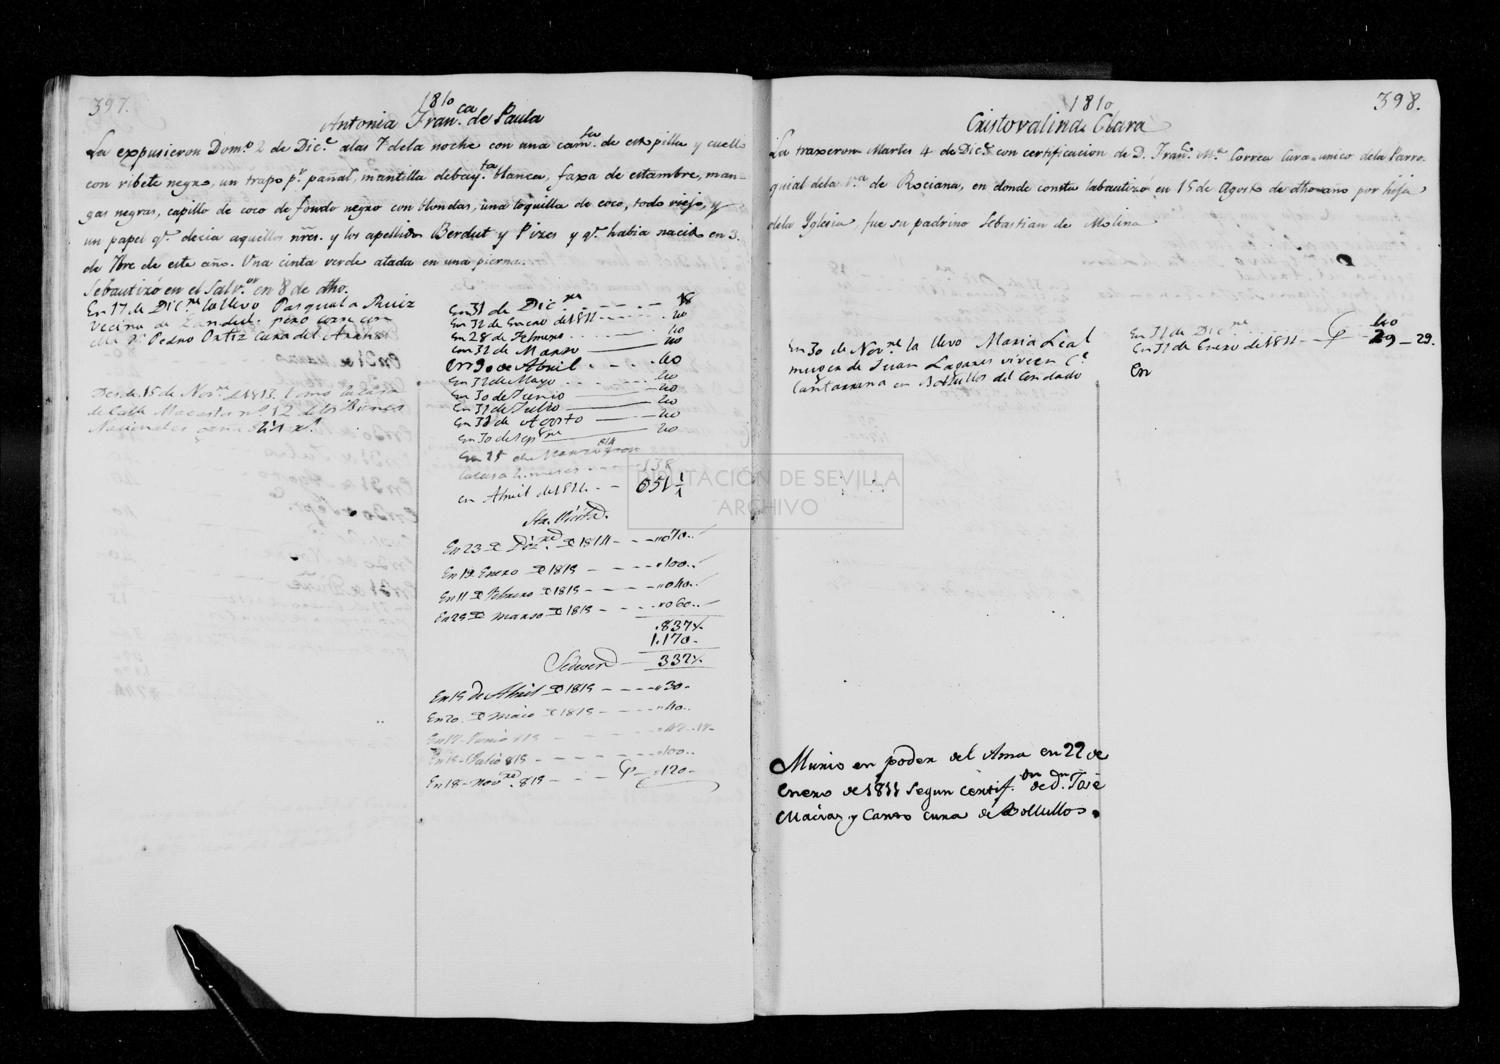 397.
1810
Antonia Fran.ca de Paula
La expusieron Dom.o 2 de Dic.e a las 7 de la noche con una cam.sa de estopilla y cuello
con ribete negro, un trapo p.r pañal, mantilla de bay.ta blanca, faxa de estambre, man-
gas negras, capillo de coco de fondo negro con blondas, una toquilla de coco, todo viejo, y
un papel q.e decia aquellos nres. y los apellidos Berdut y Pires y q.e habia nacido en 3.
de 7bre de este año. Una cinta verde atada en una pierna.
Se bautizó en el Salv.or en 8 de dho.
En 17 de Dic.re la llevo Pasquala Ruiz
vecina de pero corre con
ella D.n Pedro Ortiz Cura del
Desde 15 de Nov.re de 1813. tomo la casa
de Calle Macasta n.o 12 de los Bienes
Nacionales
En 31 de Dic.re 18
En 31 de Enero de 1811 40
En 28 de Febrero 40
En 31 de Marzo 40
En 30 de Abril 40
En 31 de Mayo 40
En 30 de Junio 40
En 31 de Julio 40
En 31 de Agosto 40
En 30 de Sep.re 40
En 25 de Marzo 814
138
en Abril de 1814
En 23 de Diz.re de 1814 070
En 19. Enero de 1815 100
En 11 de Febrero de 1815 040
En 29 de Marzo de 1815 060
837
1.170
332
En 15 de Abril de 1815 30
En 20 de Maio de 1815 40
En 17 Junio 815
En 15 Julio 815 100
En 18 Nov.re 815 120
398.
1810
Cristovalina Clara
La traxeron Martes 4 de Dic.e con certificacion de D. Fran.co M.a Correa Cura unico de la Parro
quial de la V.a de Rociana, en donde consta la bautizó en 15 de Agosto de dho año por hija
de la Yglesia, fue su padrino Sebastian de Molina
En 30 de Nov.re la llevo Maria Leal
muger de Juan Lagares viven C.e
Cantarrana en Bollullos del Condado
En 31 de Dic.re 40
En 31 de Enero de 1811 29 29.
En
Murio en poder del Ama en 22 de
Enero de 1811 segun certif.on de D.n José
Macias y Carro cura de Bollullos.
DIPUTACIÓN DE SEVILLA
ARCHIVO